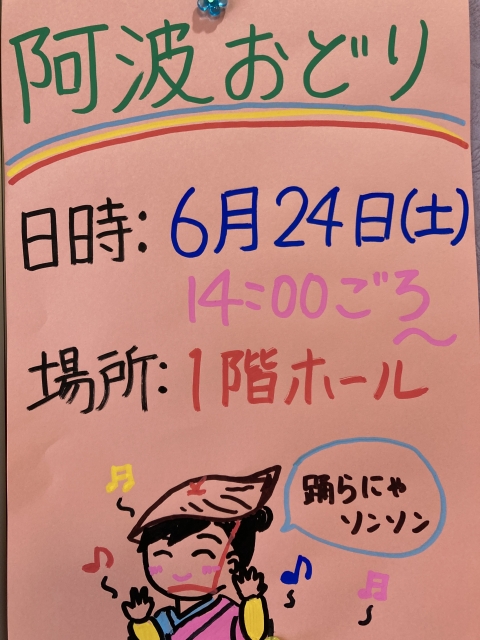 阿波おどり
日時:6月24日(土)
14:00ごろ〜
場所:1階ホール
踊らにゃ
ソンソン